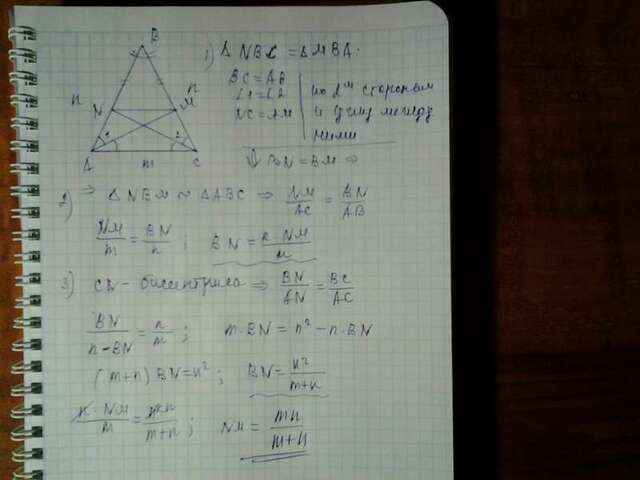 B
n
n
N
M
A
m
C
1) Δ NBC = Δ MBA:
BC = AB
∠1 = ∠2
NC = AM
по 2м сторонам
и углу между
ними
⇓ BN = BM ⇒
2) ⇒ Δ NBM ∾ Δ ABC ⇒ NM/AC = BN/AB
NM/m = BN/n ; BN = n·NM/m
3) CN - биссектриса ⇒ BN/AN = BC/AC
BN/n-BN = n/m ; m·BN = n² - n·BN
(m+n) BN = n² ; BN = n²/m+n
n·NM/m = n²/m+n ; NM = mn/m+n